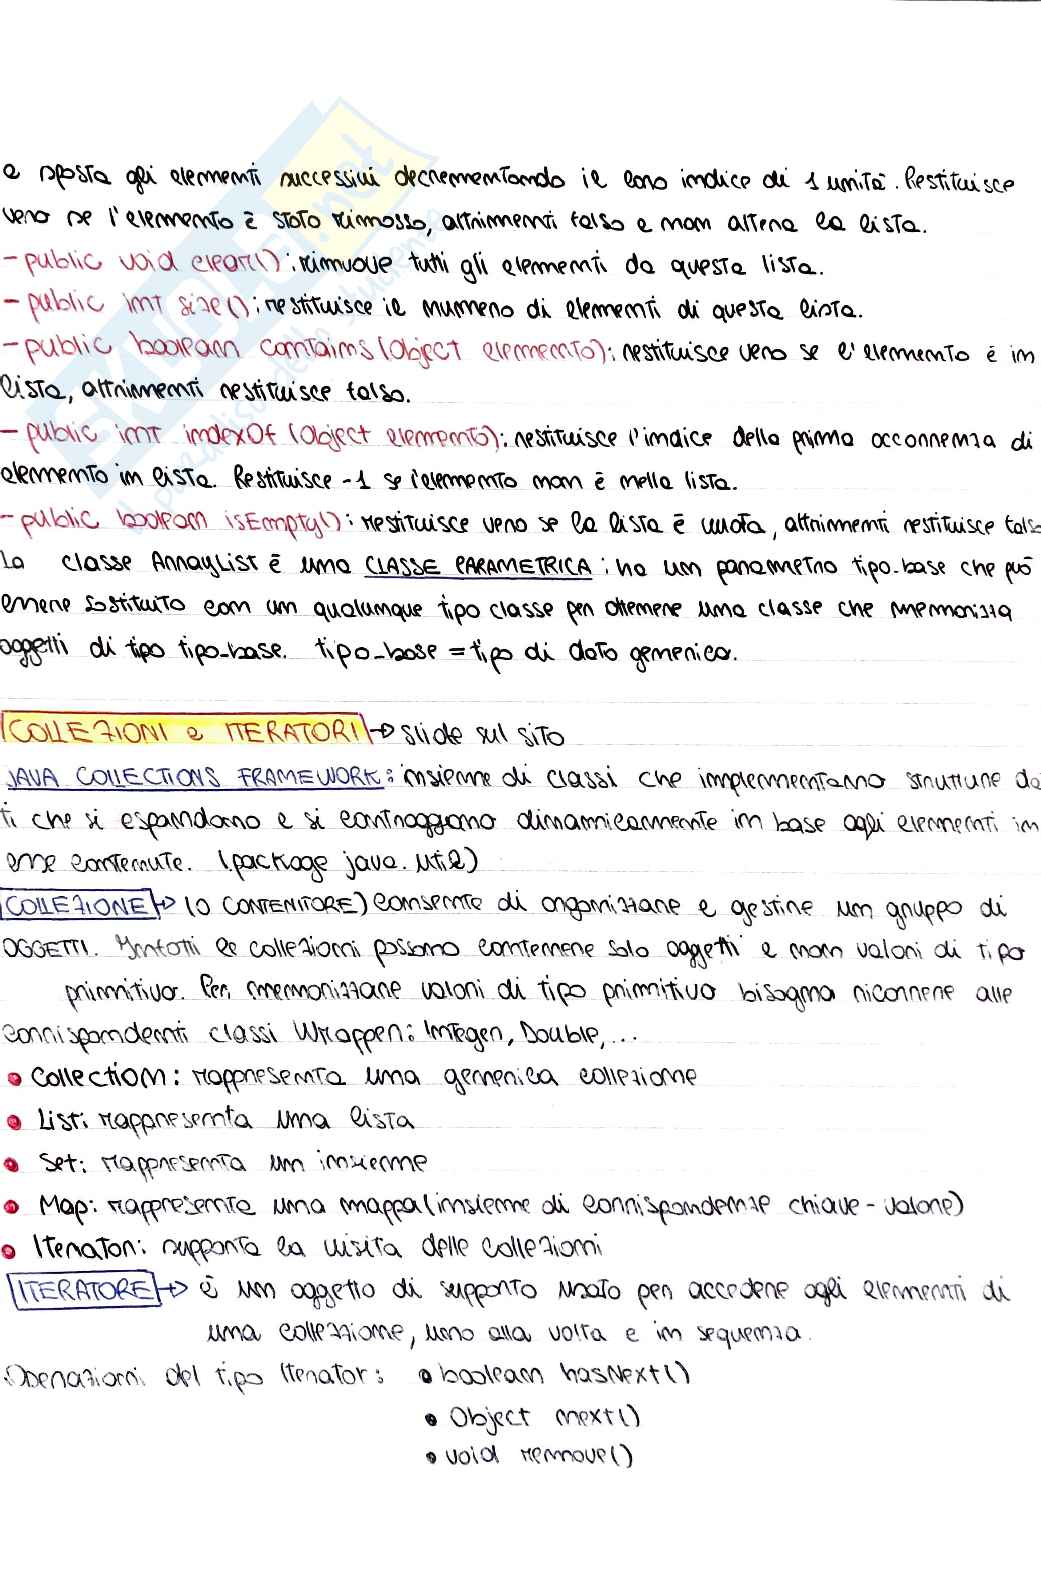 e sposta gli elementi successivi decrementando il loro indice di 1 unità. Restituisce
vero se l'elemento è stato rimosso, altrimenti falso e non altera la lista.
- public void clear(): rimuove tutti gli elementi da questa lista.
- public int size(): restituisce il numero di elementi di questa lista.
- public boolean contains(Object elemento): restituisce vero se l'elemento è in
lista, altrimenti restituisce falso.
- public int indexOf(Object elemento): restituisce l'indice della prima occorrenza di
elemento in lista. Restituisce -1 se l'elemento non è nella lista.
- public boolean isEmpty(): restituisce vero se la lista è vuota, altrimenti restituisce falso
La classe ArrayList è una CLASSE PARAMETRICA: ha un parametro tipo-base che può
essere sostituito con un qualunque tipo classe per ottenere una classe che memorizza
oggetti di tipo tipo-base. tipo-base = tipo di dato generico.
COLLEZIONI e ITERATORI → slide sul sito
JAVA COLLECTIONS FRAMEWORK: insieme di classi che implementano strutture da
ti che si espandono e si contraggono dinamicamente in base agli elementi in
esse contenute. (package java.util)
COLLEZIONE → (O CONTENITORE) consente di organizzare e gestire un gruppo di
OGGETTI. Infatti le collezioni possono contenere solo oggetti e non valori di tipo
primitivo. Per memorizzare valori di tipo primitivo bisogna ricorrere alle
corrispondenti classi Wrapper: Integer, Double,...
• Collection: rappresenta una generica collezione
• List: rappresenta una lista
• Set: rappresenta un insieme
• Map: rappresenta una mappa (insieme di corrispondenze chiave-valore)
• Iterator: supporta la visita delle collezioni
ITERATORE → è un oggetto di supporto usato per accedere agli elementi di
una collezione, uno alla volta e in sequenza.
Operazioni del tipo Iterator: • boolean hasNext()
• Object next()
• void remove()